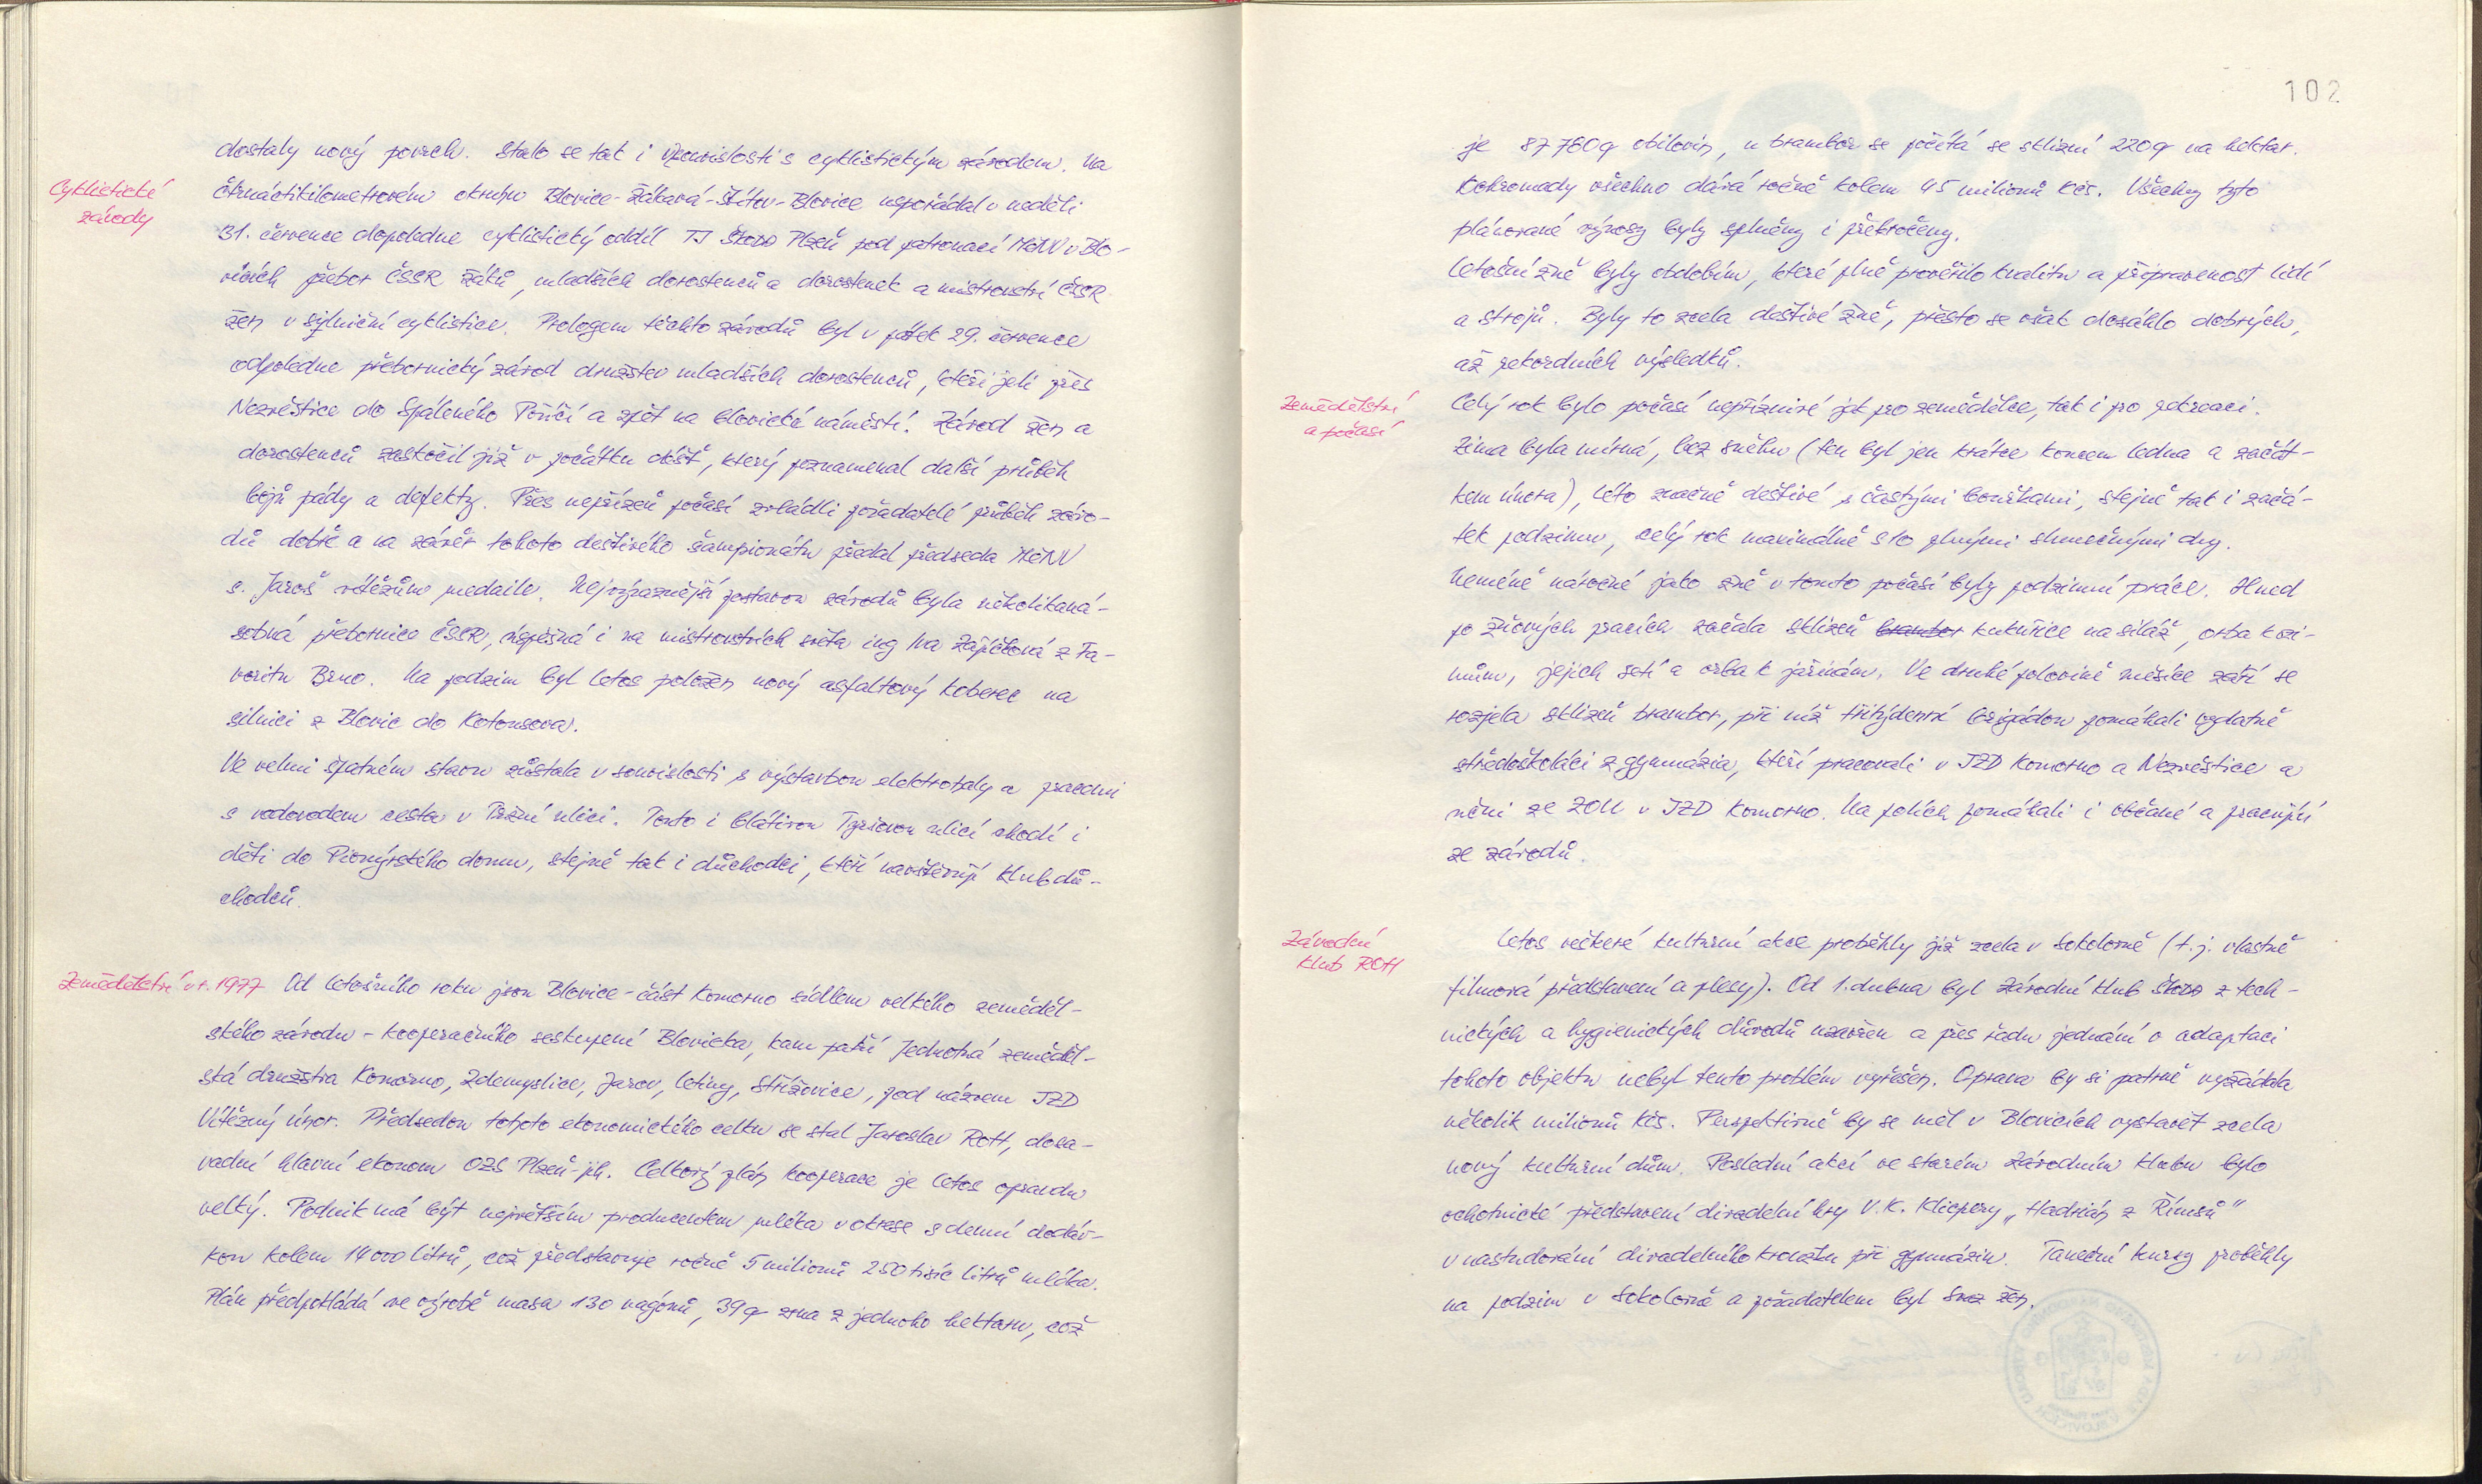 dostaly nový povrch. Stalo se tak i v souvislosti s cyklistickým závodem. Na
Cyklistické
závody
čtrnáctikilometrovém okruhu Blovice-Ždkavá-Štítov-Blovice uspořádal v neděli
31. července dopoledne cyklistický oddíl TJ Škoda Plzeň pod patronací MěNV v Blo-
vicích přebor ČSSR žáků, mladších dorostenců a dorostenek a mistrovství ČSSR
žen v silniční cyklistice. Prologem těchto závodů byl v pátek 29. července
odpoledne přebornický závod družstev mladších dorostenců, kteří jeli přes
Nezvěstice do Spáleného Poříčí a zpět na blovické náměstí. Závod žen a
dorostenců zaskočil již v počátku déšť, který poznamenal další průběh
bojů pády a defekty. Přes nepřízeň počasí zvládli pořadatelé průběh závo-
dů dobře a na závěr tohoto deštivého šampionátu předal předseda MěNV
s. Jaroš vítězům medaile. Nejvýraznější postavou závodů byla několikaná-
sobná přebornice ČSSR, úspěšná i na mistrovstvích světa ing Iva Zajíčková z Fa-
voritu Brno. Na podzim byl letos položen nový asfaltový koberec na
silnici z Blovic do Kotousova.
Ve velmi špatném stavu zůstala v souvislosti s výstavbou elektrohaly a pracemi
s vodovodem cesta v Tržní ulici. Touto i blátivou Tyršovou ulicí chodí i
děti do Pionýrského domu, stejně tak i důchodci, kteří navštěvují Klub dů-
chodců.
Zemědělství v r. 1977
Od letošního roku jsou Blovice-část Komorno sídlem velkého zeměděl-
ského závodu - kooperačního seskupení Blovicka, kam patří Jednotná zeměděl-
ská družstva Komorno, Zdemyslice, Jarov, Letiny, Střížovice, pod názvem JZD
Vítězný únor. Předsedou tohoto ekonomického celku se stal Jaroslav Rott, dosa-
vadní hlavní ekonom OZS Plzeň-jih. Celkový plán kooperace je letos opravdu
velký. Podnik má být největším producentem mléka v okrese s denní dodáv-
kou kolem 14 000 litrů, což představuje ročně 5 milionů 250 tisíc litrů mléka.
Plán předpokládá ve výrobě masa 130 vagónů, 39 q zrna z jednoho hektaru, což
102
je 87 780 q obilovin, u brambor se počítá se sklizní 220 q na hektar.
Dohromady všechno dává ročně kolem 45 milionů Kčs. Všechny tyto
plánované výnosy byly splněny i překročeny.
Letošní žně byly obdobím, které plně prověřilo kvalitu a připravenost lidí
a strojů. Byly to zcela deštivé žně, přesto se však dosáhlo dobrých,
až rekordních výsledků.
Zemědělství
a počasí
Celý rok bylo počasí nepříznivé jak pro zemědělce, tak i pro rekreaci.
Zima byla mírná, bez sněhu (ten byl jen krátce koncem ledna a začát-
kem února), léto značně deštivé s častými bouřkami, stejně tak i začá-
tek podzimu, celý rok maximálně s 10 plnými slunečnými dny.
Neméně náročné jako žně v tomto počasí byly podzimní práce. Hned
po žňových pracích začala sklizeň brambor kukuřice na siláž, orba k ozi-
mům, jejich setí a orba k jařinám. Ve druhé polovině měsíce září se
rozjela sklizeň brambor, při níž třítýdenní brigádou pomáhali vydatně
středoškoláci z gymnázia, kteří pracovali v JZD Komorno a Nezvěstice a
učni ze ZOU v JZD Komorno. Na polích pomáhali i občané a pracující
ze závodů.
Závodní
klub ROH
Letos veškeré kulturní akce proběhly již zcela v Sokolovně (t.j. vlastně
filmová představení a plesy). Od 1. dubna byl Závodní klub Škoda z tech-
nických a hygienických důvodů uzavřen a přes řadu jednání o adaptaci
tohoto objektu nebyl tento problém vyřešen. Oprava by si patrně vyžádala
několik milionů Kčs. Perspektivně by se měl v Blovicích vystavět zcela
nový kulturní dům. Poslední akcí ve starém Závodním klubu bylo
ochotnické představení divadelní hry V. K. Klicpery „Hadrián z Římsů"
v nastudování divadelního kroužku při gymnáziu. Taneční kursy proběhly
na podzim v Sokolovně a pořadatelem byl Svaz žen.